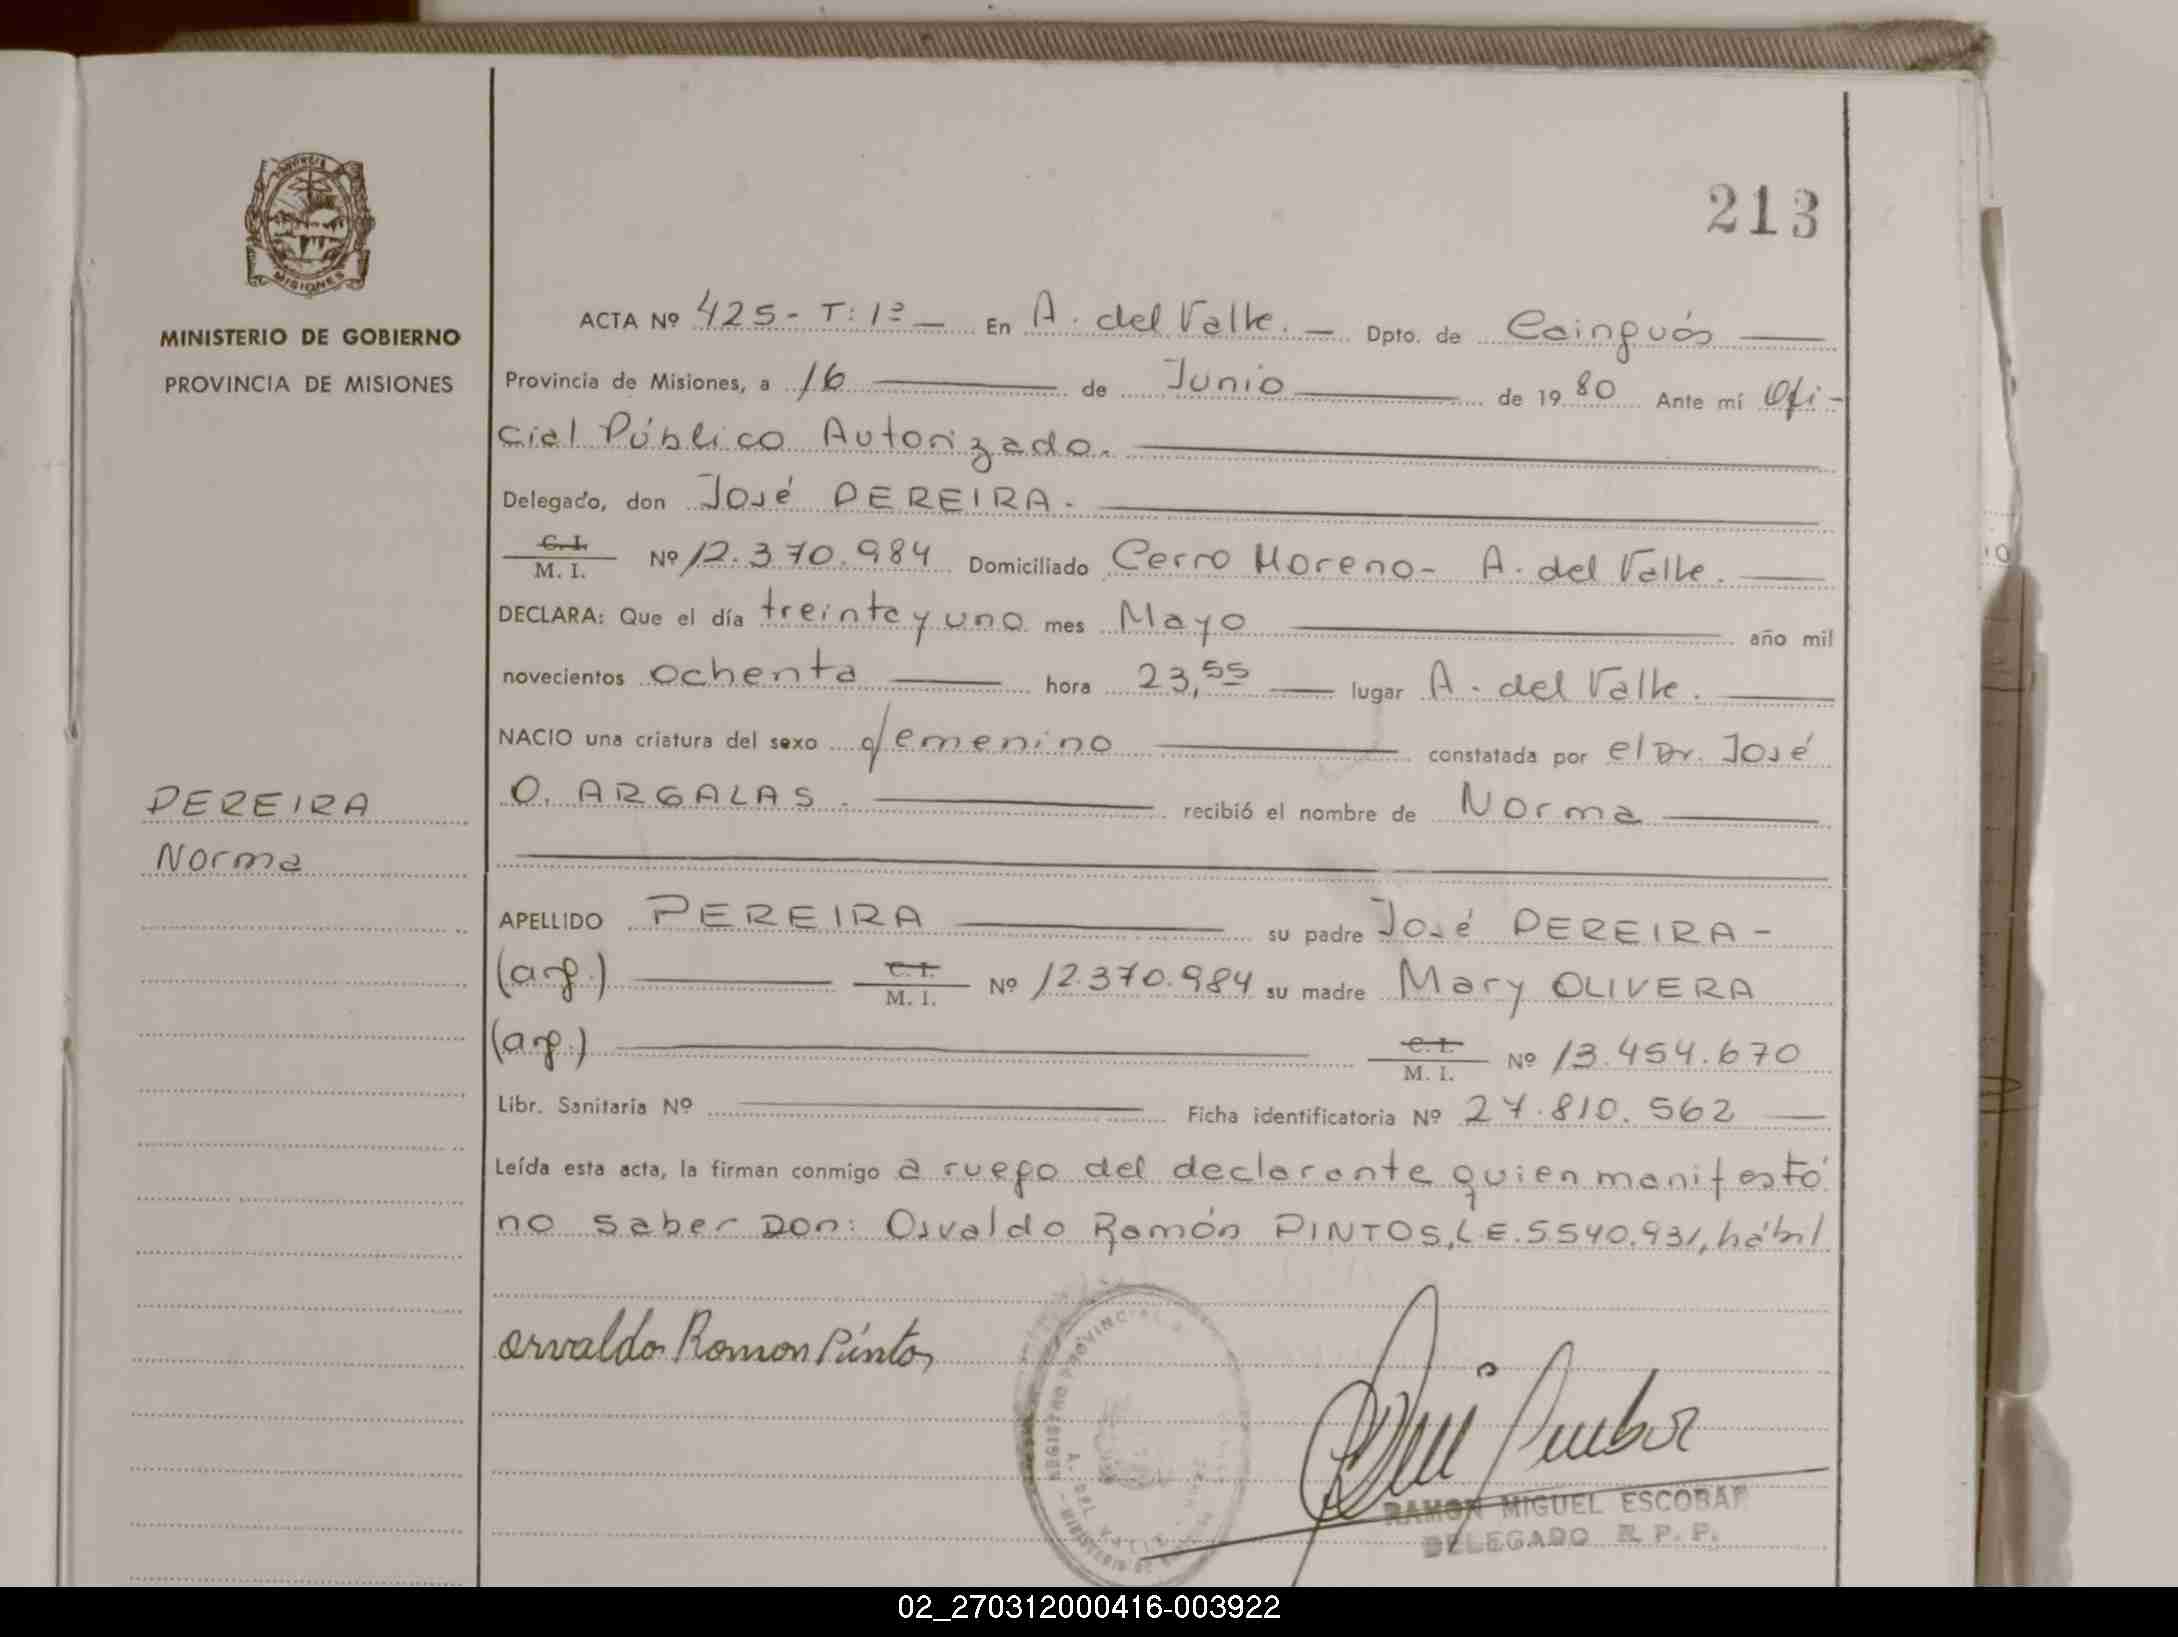 213
MISIONES
MINISTERIO DE GOBIERNO
PROVINCIA DE MISIONES
PEREIRA
Norma
ACTA Nº 425 - T: 1º — En A. del Valle. — Dpto. de Cainguás —
Provincia de Misiones, a 16 — de Junio — de 19 80 Ante mí Ofi-
cial Público Autorizado. —
Delegado, don José PEREIRA. —
C. I.
M. I. Nº 12.370.984 Domiciliado Cerro Moreno - A. del Valle. —
DECLARA: Que el día treinta y uno mes Mayo — año mil
novecientos ochenta — hora 23,55 — lugar A. del Valle. —
NACIO una criatura del sexo femenino — constatada por el Dr. José
O. ARGALAS. — recibió el nombre de Norma —
APELLIDO PEREIRA — su padre José PEREIRA -
(arg.) — C. I.
M. I. Nº 12.370.984 su madre Mary OLIVERA
(arg.) — C. I.
M. I. Nº 13.454.670
Libr. Sanitaria Nº — Ficha identificatoria Nº 27.810.562 —
Leída esta acta, la firman conmigo a ruego del declarante quien manifestó
no saber Don: Osvaldo Ramón PINTOS, L.E. 5540.931, hábil
Osvaldo Ramon Pintos
REGISTRO PROVINCIAL
A. DEL VALLE
RAMON MIGUEL ESCOBAR
DELEGADO R. P. P.
02_270312000416-003922